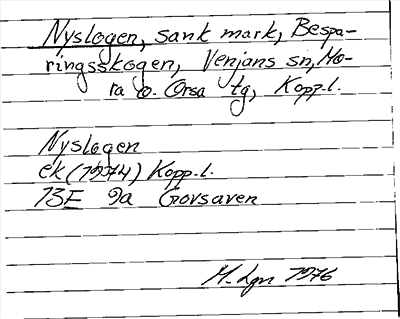 Nyslogen, sank mark, Bespa-
ringsskogen, Venjans sn, Mo-
ra o. Orsa tg, Kopp.l.
Nyslogen
ek (1974) Kopp.l.
13E 9a Govsaven
M. Lgn 1976